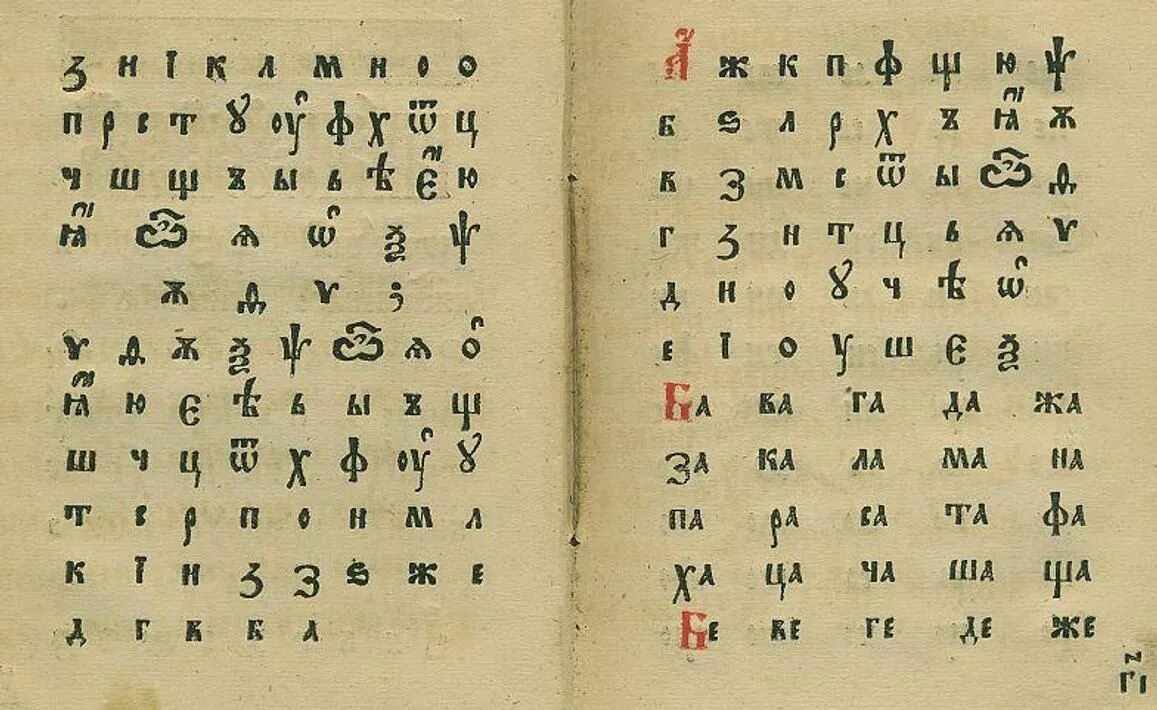 ꙁ и ї к л м н о о
п р с т ꙋ оу҆ ф х ѿ ц
ч ш щ ъ ы ь ѣ є҆ ю
ꙗ҆ ѽ ѧ ѡ҆ ѯ ѱ
ѫ ѳ ѵ ;
ѵ ѳ ѫ ѯ ѱ ѽ ѧ о҆
ꙗ҆ ю є ѣ ь ы ъ щ
ш ч ц ѿ х ф оу҆ ꙋ
т с р п о н м л
к ї и ꙁ з ѕ ж е
д г в б а
А҆ ж к п ф щ ю ѱ
б ѕ л р х ъ ꙗ҆ ѫ
в з м с ѿ ы ѽ ѳ
г ꙁ н т ц ь ѧ ѵ
д и о ꙋ ч ѣ ѡ҆
е ї о у ш є ѯ
Ба ва га да жа
за ка ла ма на
па ра са та фа
ха ца ча ша ща
Бе ве ге де же
г҃і